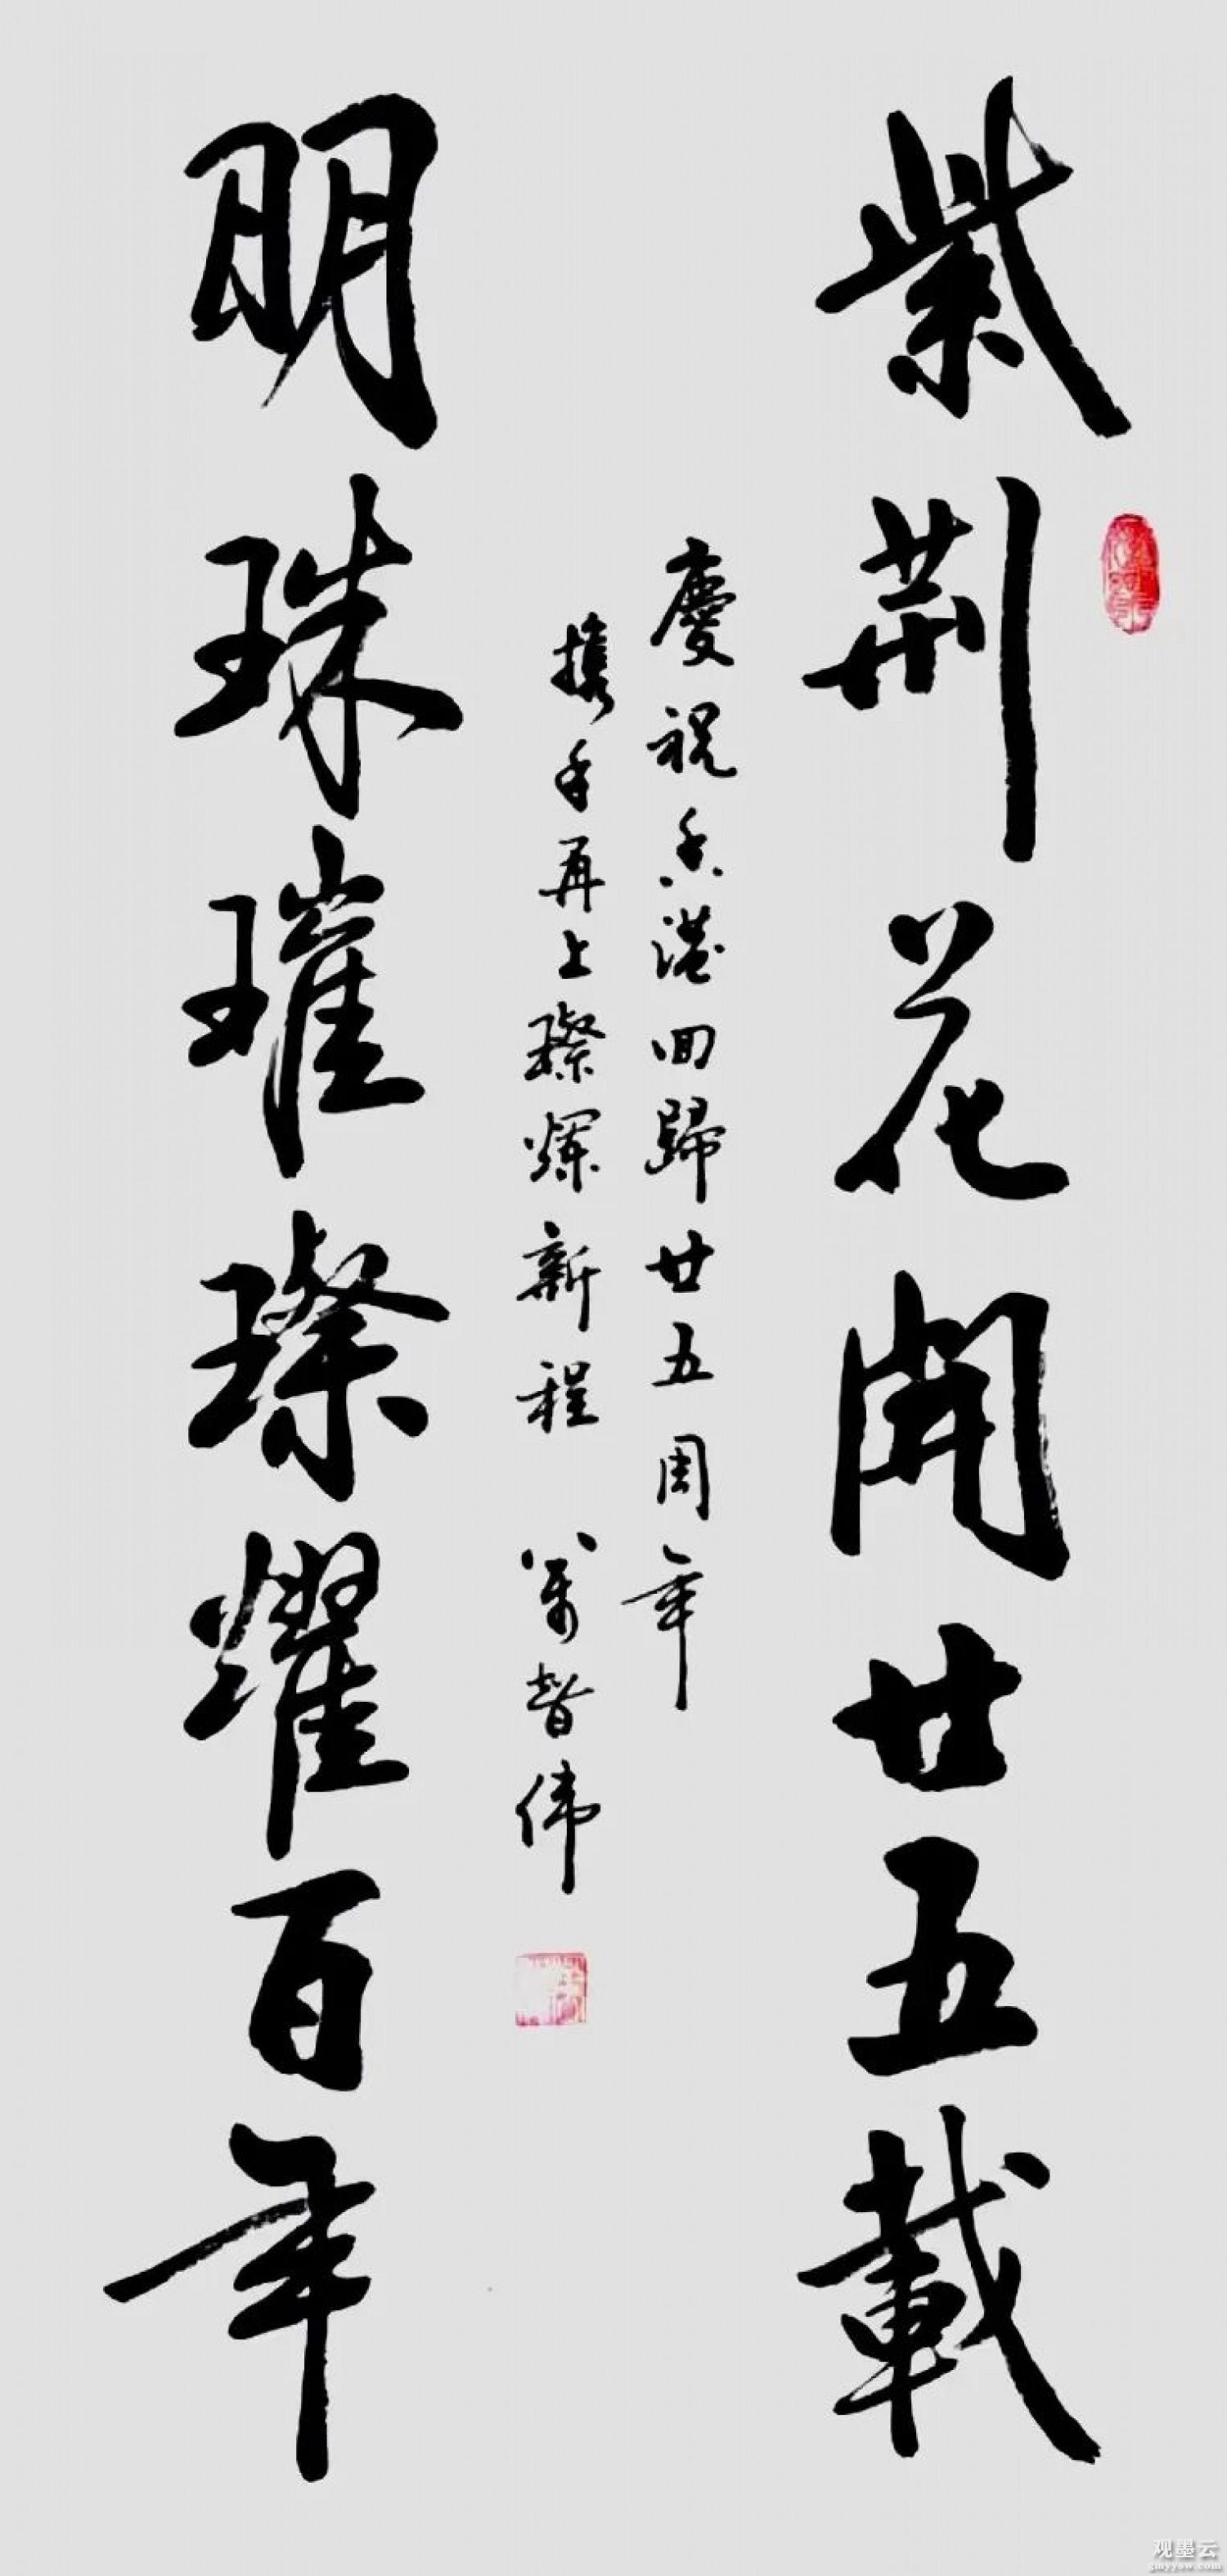 紫荆花開廿五載
慶祝香港回歸廿五周年
攜手再上璨爛新程 萬智伟
明珠璀璨耀百年
观墨云
gmyyaw.com